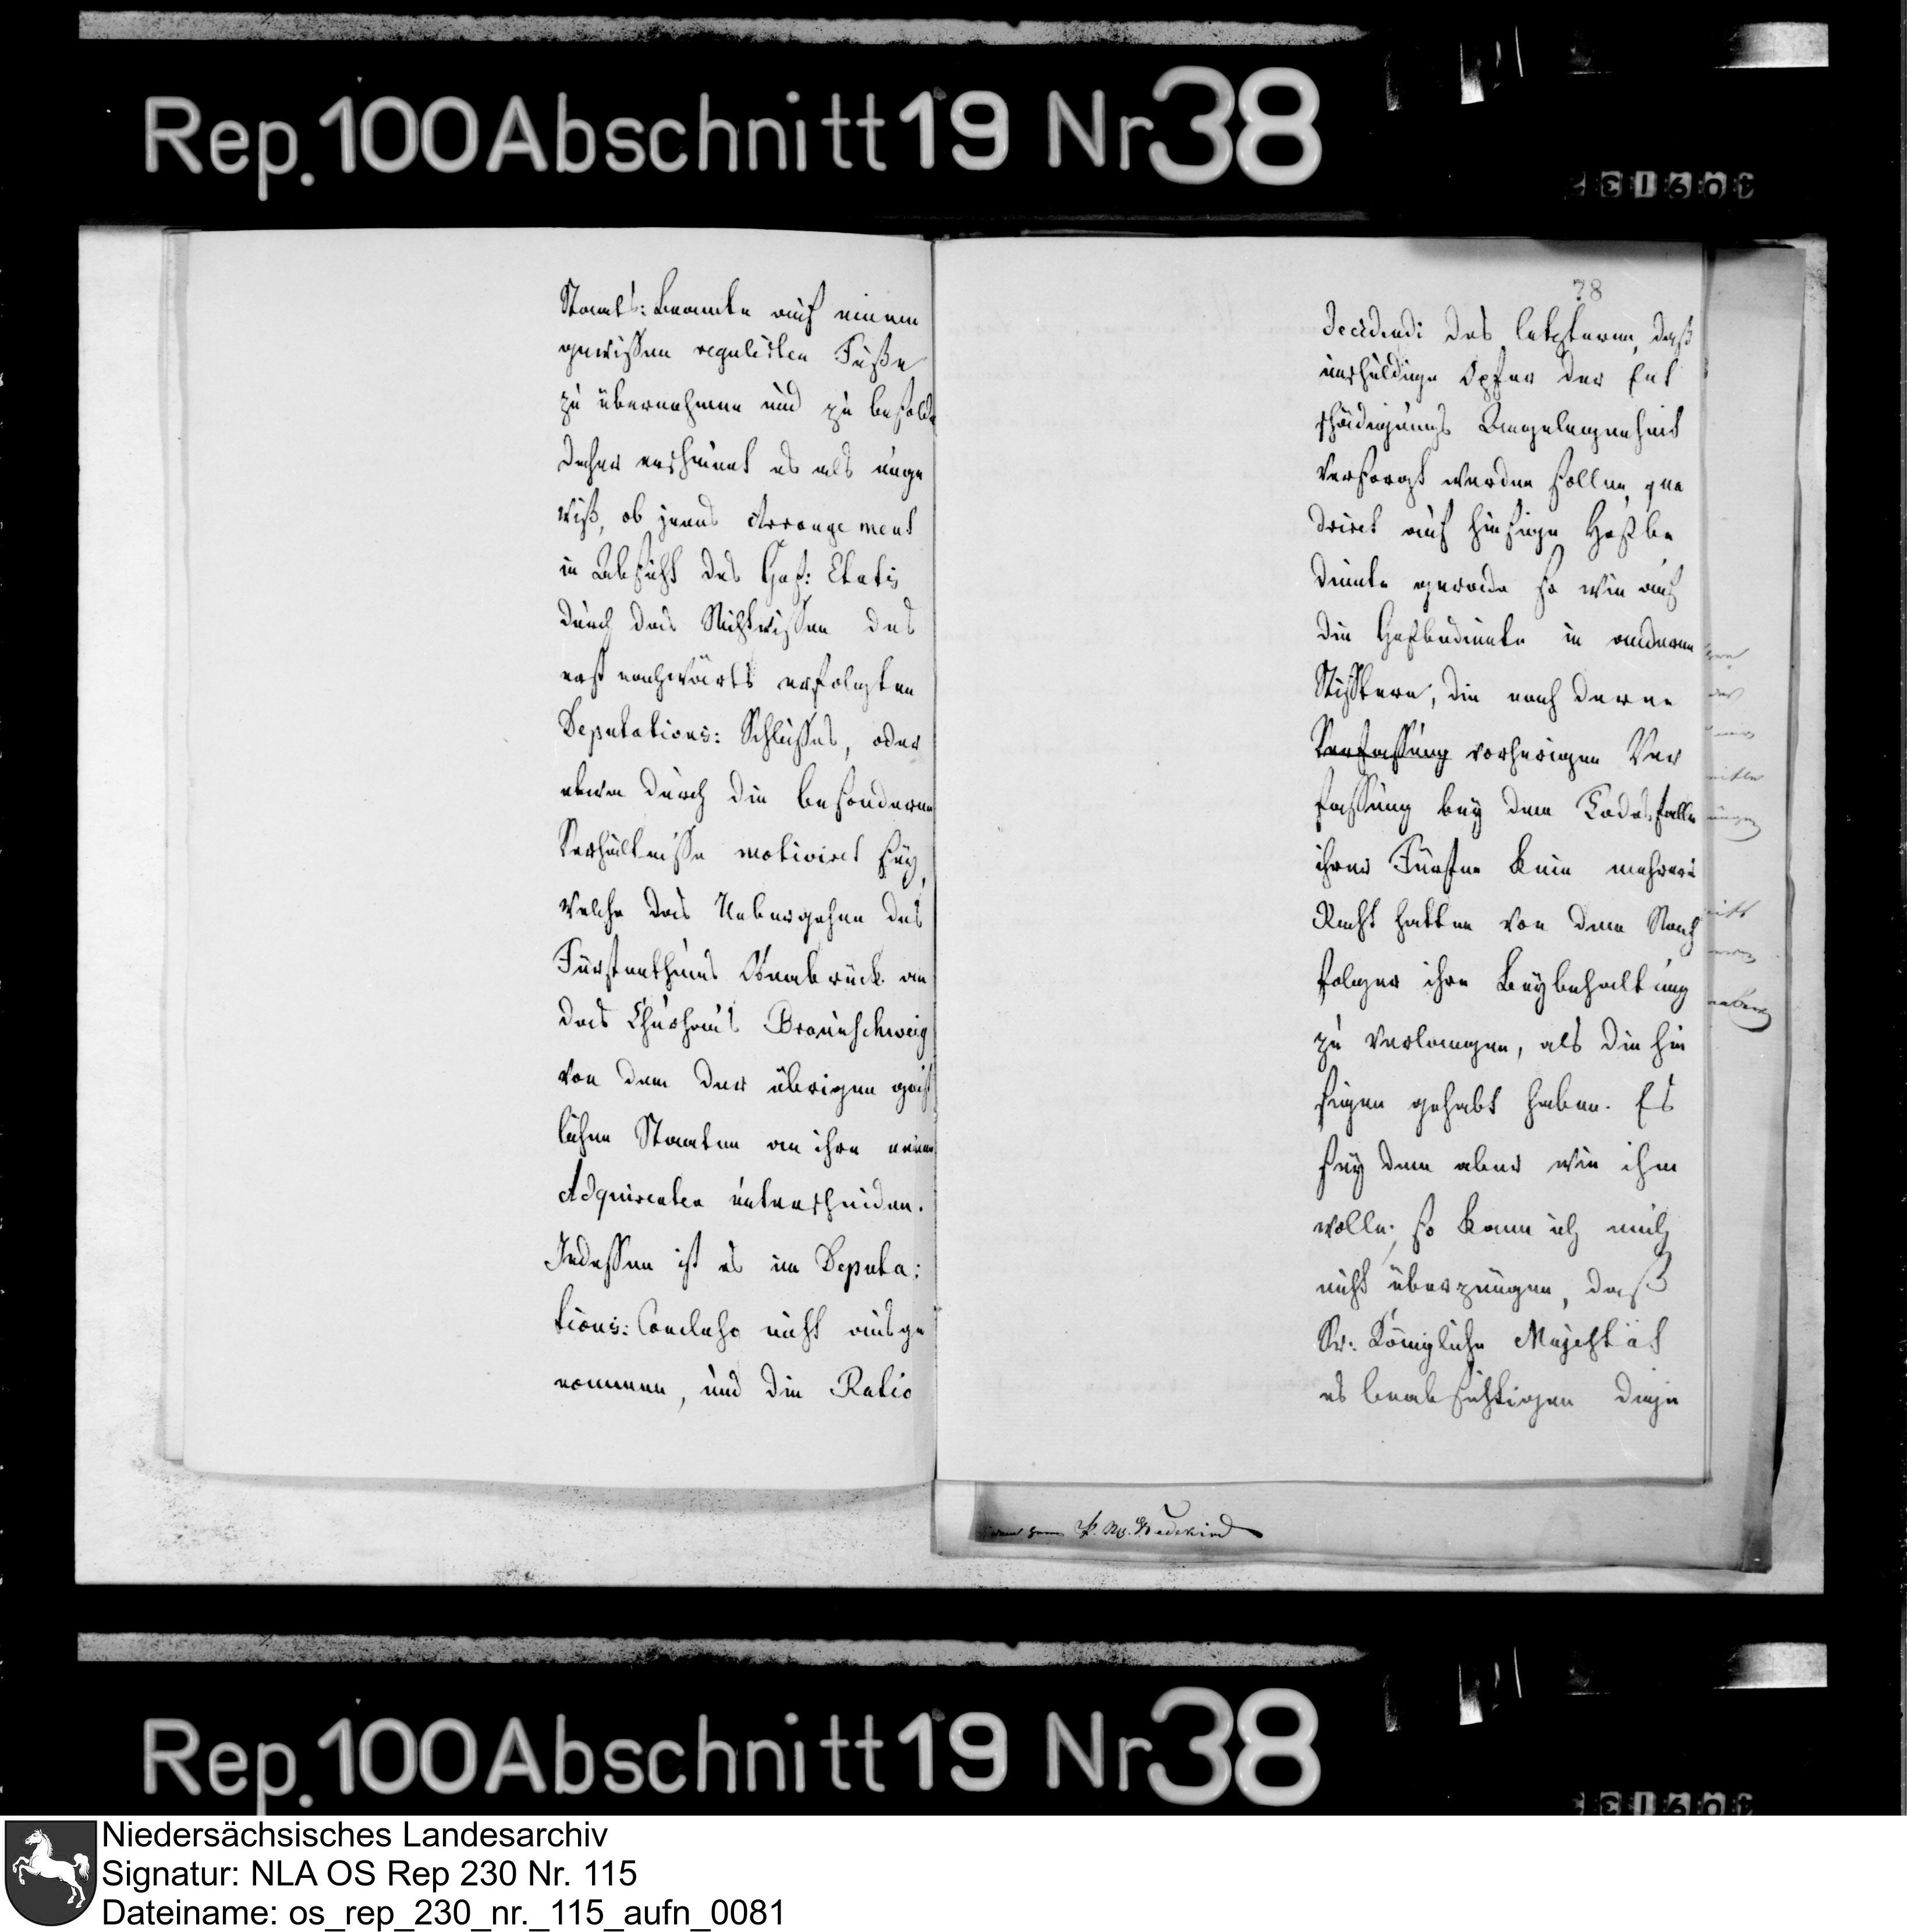 Rep. 100 Abschnitt 19 Nr 38
Staats: Beamte auf einem
gewissen regulirten Fuße
zu übernehmen und zu besolden
Daher erscheinet es als unge
wiß, ob jenes Arrangement
in Absicht des Hof: Etats
durch das Nichtwissen des
erst nachwärts erfolgten
Deputations: Schlusses, oder
etwa durch die besonderen
Verhältnisse motiviret sey,
welche das Uebergehen des
Fürstenthums Osnabrück an
das Churhaus Braunschweig
von dem der übrigen geist
lichen Staaten an ihre neuen
Adquirenten unterscheiden.
Indessen ist es im Deputa:
tions: Concluso nicht ausge
nommen, und die Ratio
38
decidendi des letzteren, daß
unschuldige Opfer der Ent
schädigungs Angelegenheit
versorgt werden sollen, qua
driret auf hiesige Hofbe
diente gerade so wie auf
die Hofbediente in anderen
Stiftern, die nach deren
Verfassung vorherigen Ver
fassung bey dem Todesfalle
ihres Fürsten kein mehrers
Recht hatten von dem Nach
folger ihre Beybehaltung
zu verlangen, als die hie
sigen gehabt haben. Es
sey dem aber wie ihm
wolle; so kann ich mich
nicht überzeugen, daß
Sr: Königliche Majestät
es beabsichtigen dieje
Wedekind
Rep. 100 Abschnitt 19 Nr 38
Niedersächsisches Landesarchiv
Signatur: NLA OS Rep 230 Nr. 115
Dateiname: os_rep_230_nr._115_aufn_0081